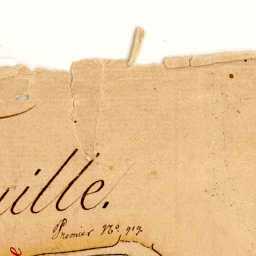 uille.
Premier Nº. 919.